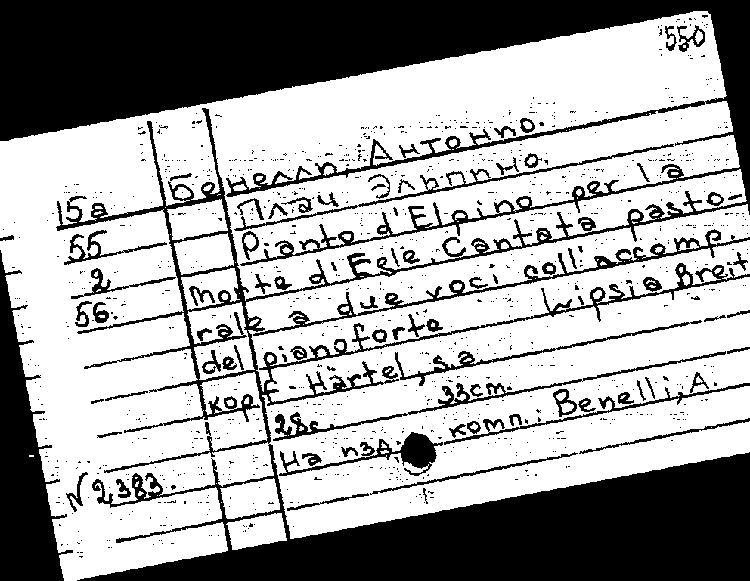 550
Бенелли, Антонио.
15а Плач Эльпино.
55 Pianto d'Elpino per la
2 morte d'Egle. Cantata pasto-
56. rale a due voci coll'accomp.
del pianoforte Lipsia, Breit
kopf - Härtel, s.a.
28c. 33cm.
На изд. комп.: Benelli, A.
№ 2383.